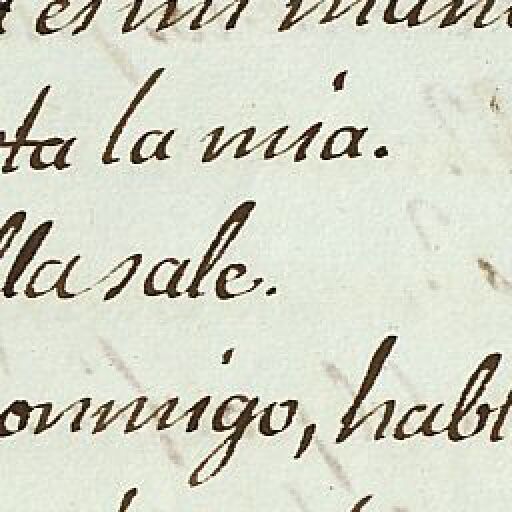 es mi man
ta la mia.
lla sale.
onmigo, habl